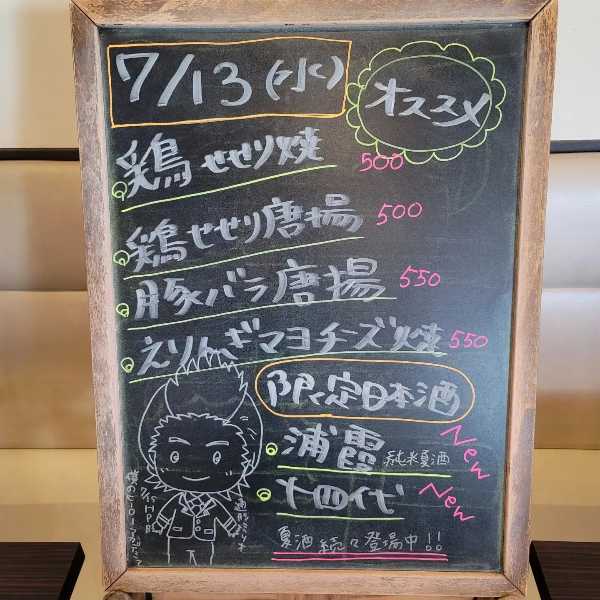 7/13(水)
オススメ
鶏せせり焼 500
鶏せせり唐揚 500
豚バラ唐揚 550
えりんぎマヨチーズ焼 550
限定日本酒
浦霞 純米夏酒 New
十四代 New
夏酒 続々登場中!!